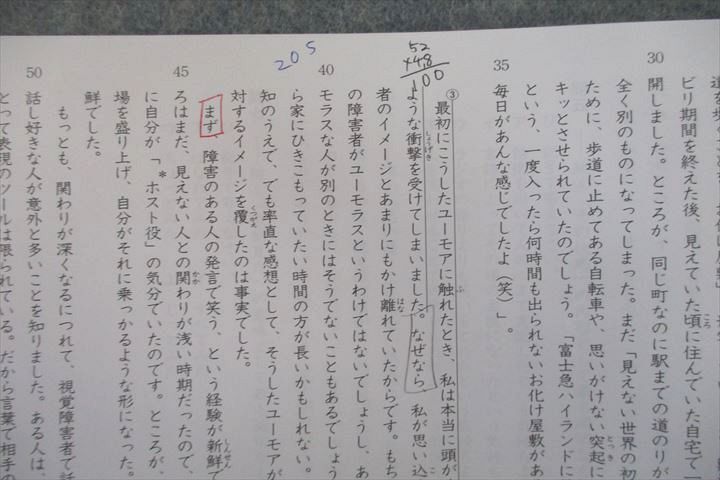 30
ビリ期間を終えた後、見えていた頃に住んでいた自宅で一
開しました。ところが、同じ町なのに駅までの道のりが
全く別のものになってしまった。まだ「見えない世界の初
ために、歩道に止めてある自転車や、思いがけない突起に
キッとさせられていたのでしょう。「富士急ハイランドに
という、一度入ったら何時間も出られないお化け屋敷があ
35
毎日があんな感じでしたよ(笑)」。
③最初にこうしたユーモアに触れたとき、私は本当に頭が
ような衝撃を受けてしまいました。なぜなら、私が思い込
者のイメージとあまりにもかけ離れていたからです。もち
の障害者がユーモラスというわけではないでしょうし、あ
40
モラスな人が別のときにはそうでないこともあるでしょう
ら家にひきこもっていたい時間の方が長いかもしれない。
知のうえで、でも率直な感想として、そうしたユーモアが
対するイメージを覆したのは事実でした。
まず、障害のある人の発言で笑う、という経験が新鮮で
45
ろはまだ、見えない人との関わりが浅い時期だったので、
に自分が「*ホスト役」の気分でいたのです。ところが、
場を盛り上げ、自分がそれに乗っかるような形になった。
鮮でした。
もっとも、関わりが深くなるにつれて、視覚障害者で話
話し好きな人が意外と多いことを知りました。ある人は、
50
とって表現のツールは限られている。だから言葉で相手の
205
52
×4.8
00